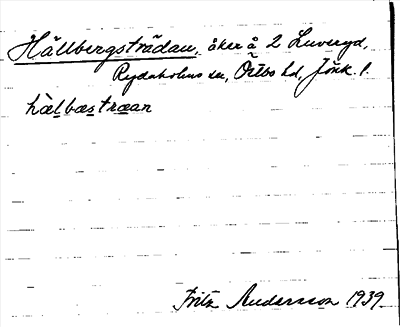 Hällbergsträdan, åker å 2 Luveryd,
Rydaholms sn, Östbo hd, Jönk. l.
hàlbæstræan
Fritz Andersson 1939